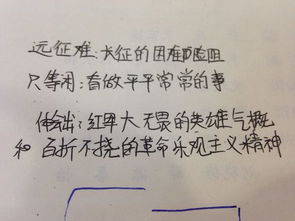 远征难：长征的困难和险阻
只等闲：看做平平常常的事
体会出：红军大无畏的英雄气概
和百折不挠的革命乐观主义精神